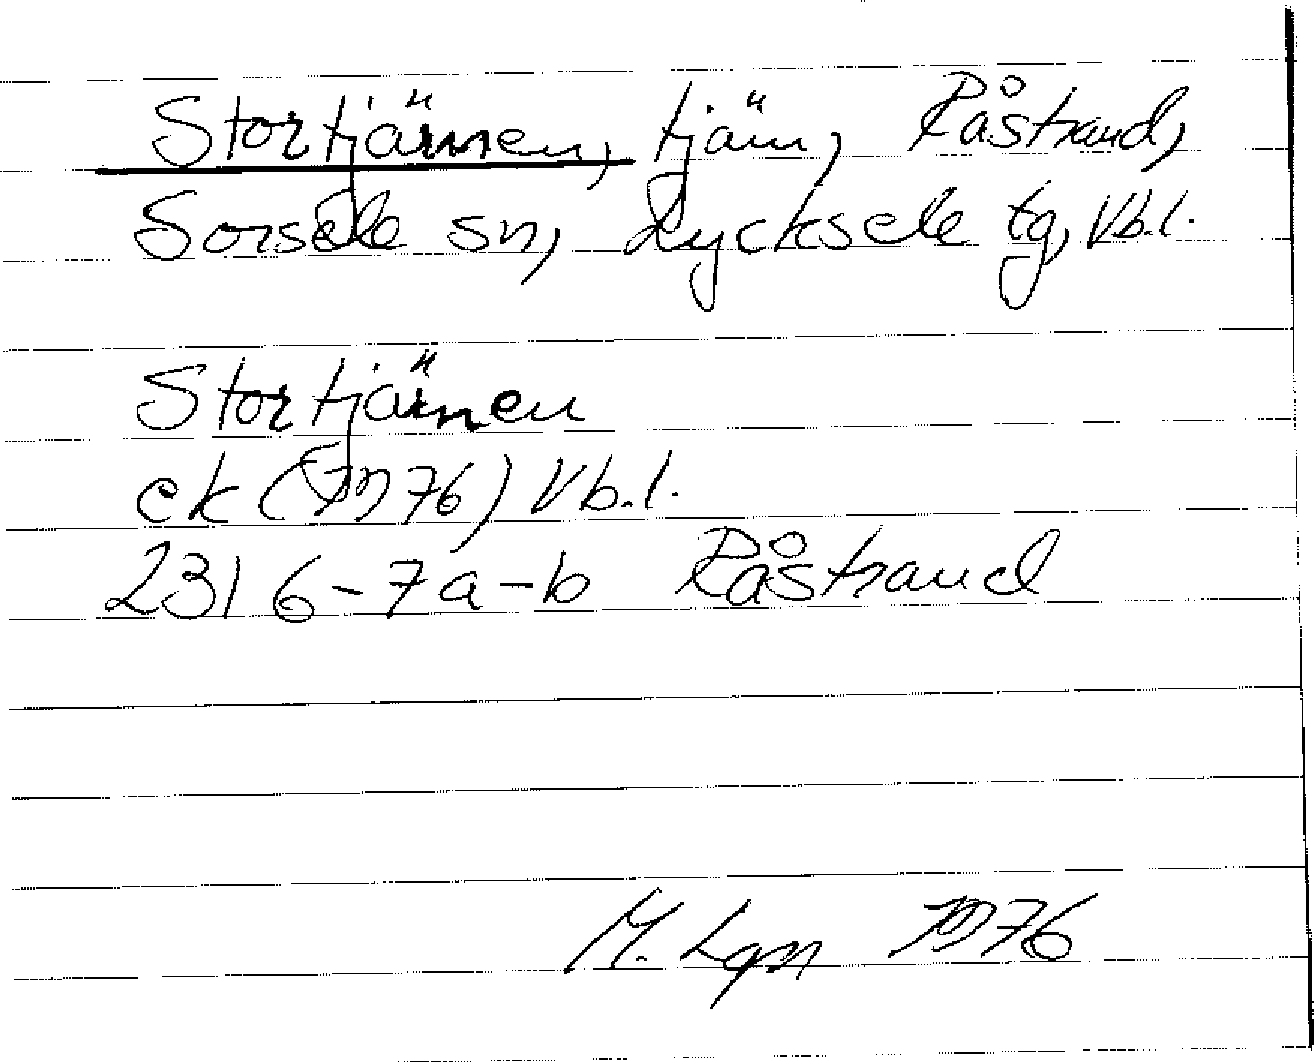 Stortjärnen, tjärn, Råstrand,
Sorsele sn, Lycksele tg, Vb.l.
Stortjärnen
ek (1976) Vb.l.
23I 6-7a-b Råstrand
M. Lgn 1976